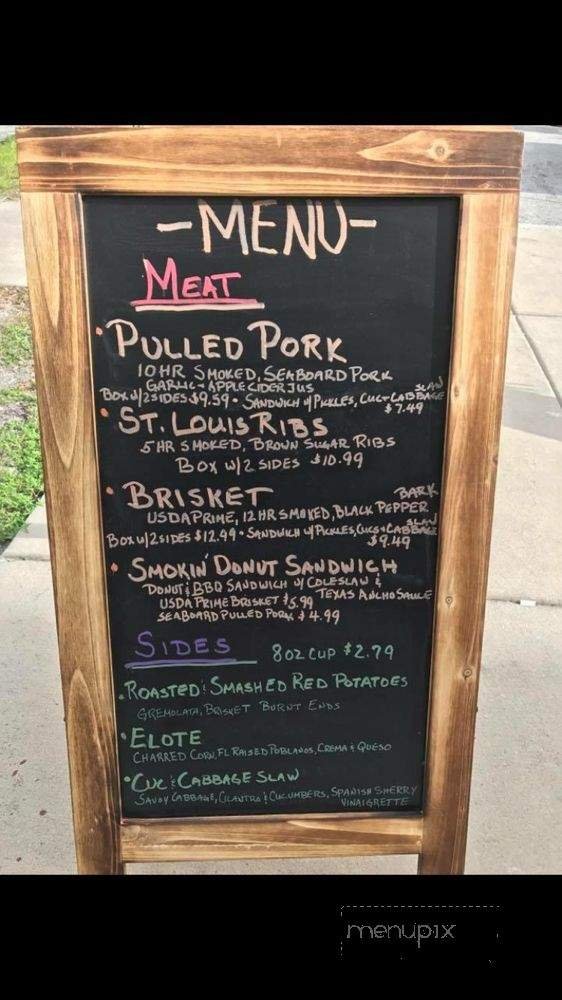 -MENU-
MEAT
PULLED PORK
10HR SMOKED, SEABOARD PORK
GARLIC-APPLE CIDER JUS
BOX W/2 SIDES $9.59 • SANDWICH W/ PICKLES, CUC+CABBAGE SLAW
$7.49
ST. LOUIS RIBS
5 HR SMOKED, BROWN SUGAR RIBS
BOX W/ 2 SIDES $10.99
BRISKET
USDA PRIME, 12 HR SMOKED, BLACK PEPPER BARK
BOX W/2 SIDES $12.49 • SANDWICH W/ PICKLES, CUCS+CABBAGE SLAW
$9.49
SMOKIN' DONUT SANDWICH
DONUT & BBQ SANDWICH W/ COLESLAW &
TEXAS ANCHO SAUCE
USDA PRIME BRISKET $5.99
SEABOARD PULLED PORK $4.99
SIDES 8OZ CUP $2.79
ROASTED & SMASHED RED POTATOES
GREMOLATA, BRISKET BURNT ENDS
ELOTE
CHARRED CORN, FL RAISED POBLANOS, CREMA & QUESO
CUC & CABBAGE SLAW
SAVOY CABBAGE, CILANTRO & CUCUMBERS, SPANISH SHERRY
VINAIGRETTE
menupix